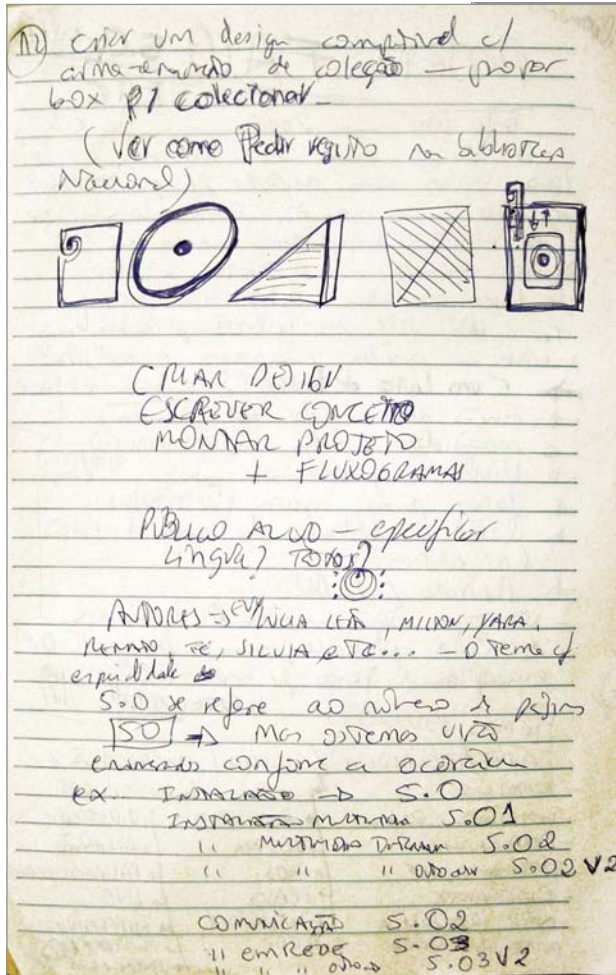 12) criar um design compatível c/
armazenamento de coleção – propor
box p/ colecionar –
(ver como Pedir registro na biblioteca
Nacional)
CRIAR DESIGN
ESCREVER CONCEITO
MONTAR PROJETO
+ FLUXOGRAMAS
PÚBLICO ALVO – especificar
Língua? TODOS?
AUTORES → EU, LUCIA LEÃO, MILTON, YARA,
RENATO, FÉ, SILVIA, eTc... – O Tema
5.0 se refere ao número de páginas
50 → Mas os Temas virão
conforme a
ex. INSTALAÇÃO → 5.0
INSTALAÇÃO MULTIMÍDIA 5.01
" MULTIMÍDIA 5.02
" " " 5.02 V2
COMUNICAÇÃO 5.02
" EM REDE 5.03
" " " 5.03 V2